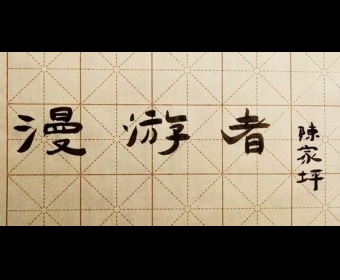 漫游者
陈家坪